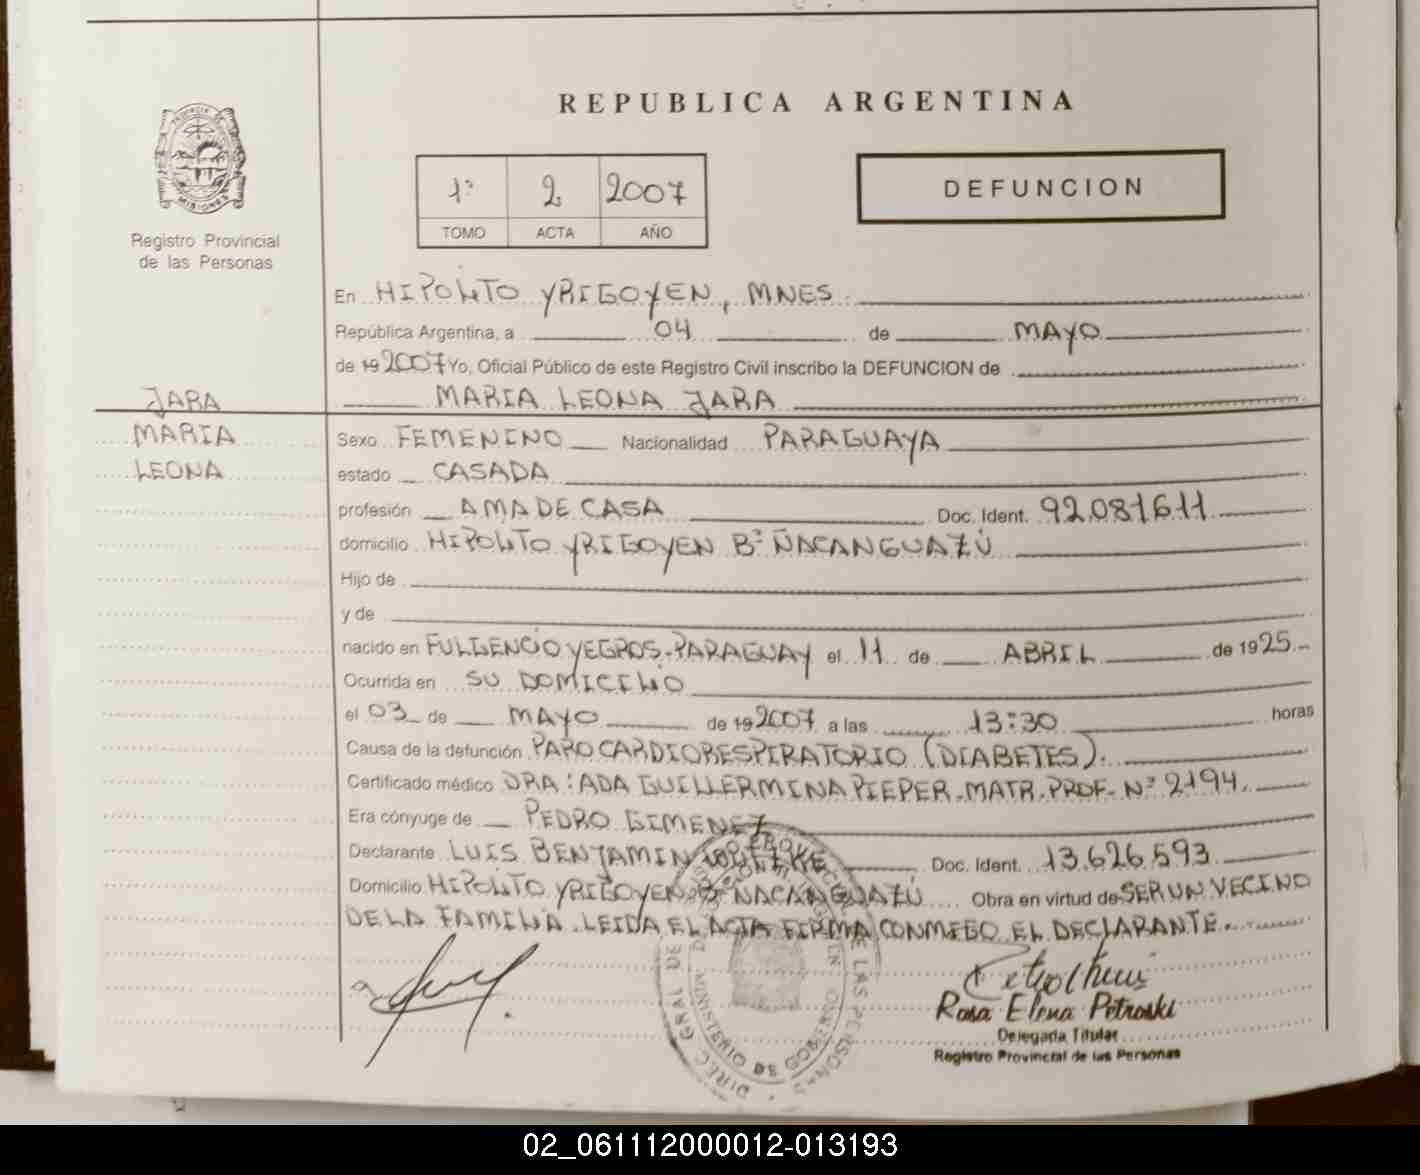 REPUBLICA ARGENTINA
1º 2 2007
TOMO ACTA AÑO
DEFUNCION
PROVINCIA DE
MISIONES
Registro Provincial
de las Personas
En HIPOLITO YRIGOYEN, MNES.
República Argentina, a 04 de MAYO
de 19 2007 Yo, Oficial Público de este Registro Civil inscribo la DEFUNCION de
MARIA LEONA JARA
JARA
MARIA
LEONA
Sexo FEMENINO Nacionalidad PARAGUAYA
estado CASADA
profesión AMA DE CASA Doc. Ident. 92.081.611
domicilio HIPOLITO YRIGOYEN Bº ÑACANGUAZÚ
Hijo de
y de
nacido en FULGENCIO YEGROS-PARAGUAY el 11 de ABRIL de 1925
Ocurrida en SU DOMICILIO
el 03 de MAYO de 19 2007 a las 13:30 horas
Causa de la defunción PARO CARDIORESPIRATORIO (DIABETES).
Certificado médico DRA: ADA GUILLERMINA PIEPER-MATR. PROF- Nº 2194.
Era cónyuge de PEDRO GIMENEZ
Declarante LUIS BENJAMIN Doc. Ident. 13.626.593
Domicilio HIPOLITO YRIGOYEN Bº ÑACANGUAZÚ Obra en virtud de SER UN VECINO
DE LA FAMILIA. LEIDA EL ACTA FIRMA CONMIGO EL DECLARANTE.
Rosa Elena Petroski
Delegada Titular
Registro Provincial de las Personas
DIREC. GRAL DE DE LAS PERSONAS
DE GOBIERNO
02_061112000012-013193